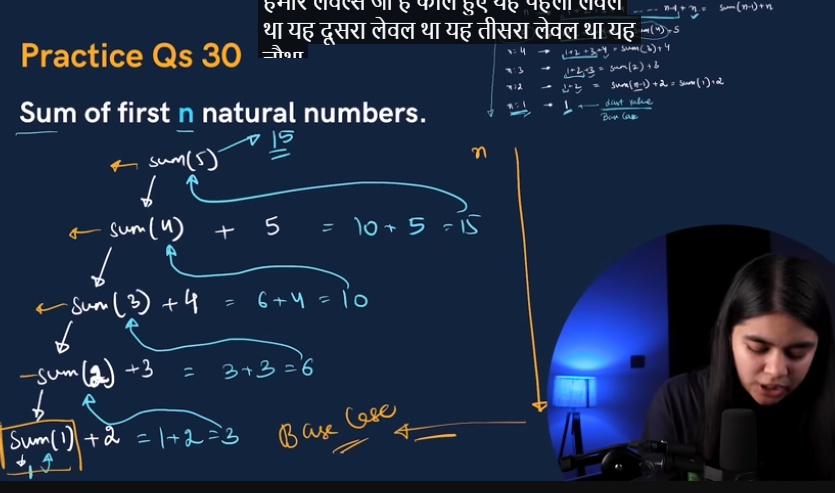 हमारे लेवल्स जो है कॉल हुए यह पहला लेवल
था यह दूसरा लेवल था यह तीसरा लेवल था यह
चौथा
Practice Qs 30
Sum of first n natural numbers.
n-1 + n = sum(n-1)+n
n=4 → 1+2+3+4 = sum(3)+4
n=3 → 1+2+3 = sum(2)+3
n=2 → 1+2 = sum(n-1)+2 = sum(1)+2
n=1 → 1 ← last value
Base Case
sum(5) → 15
n
sum(4) + 5 = 10+5 = 15
sum(3) + 4 = 6+4 = 10
sum(2) +3 = 3+3 = 6
sum(1) +2 = 1+2 = 3
1
Base Case